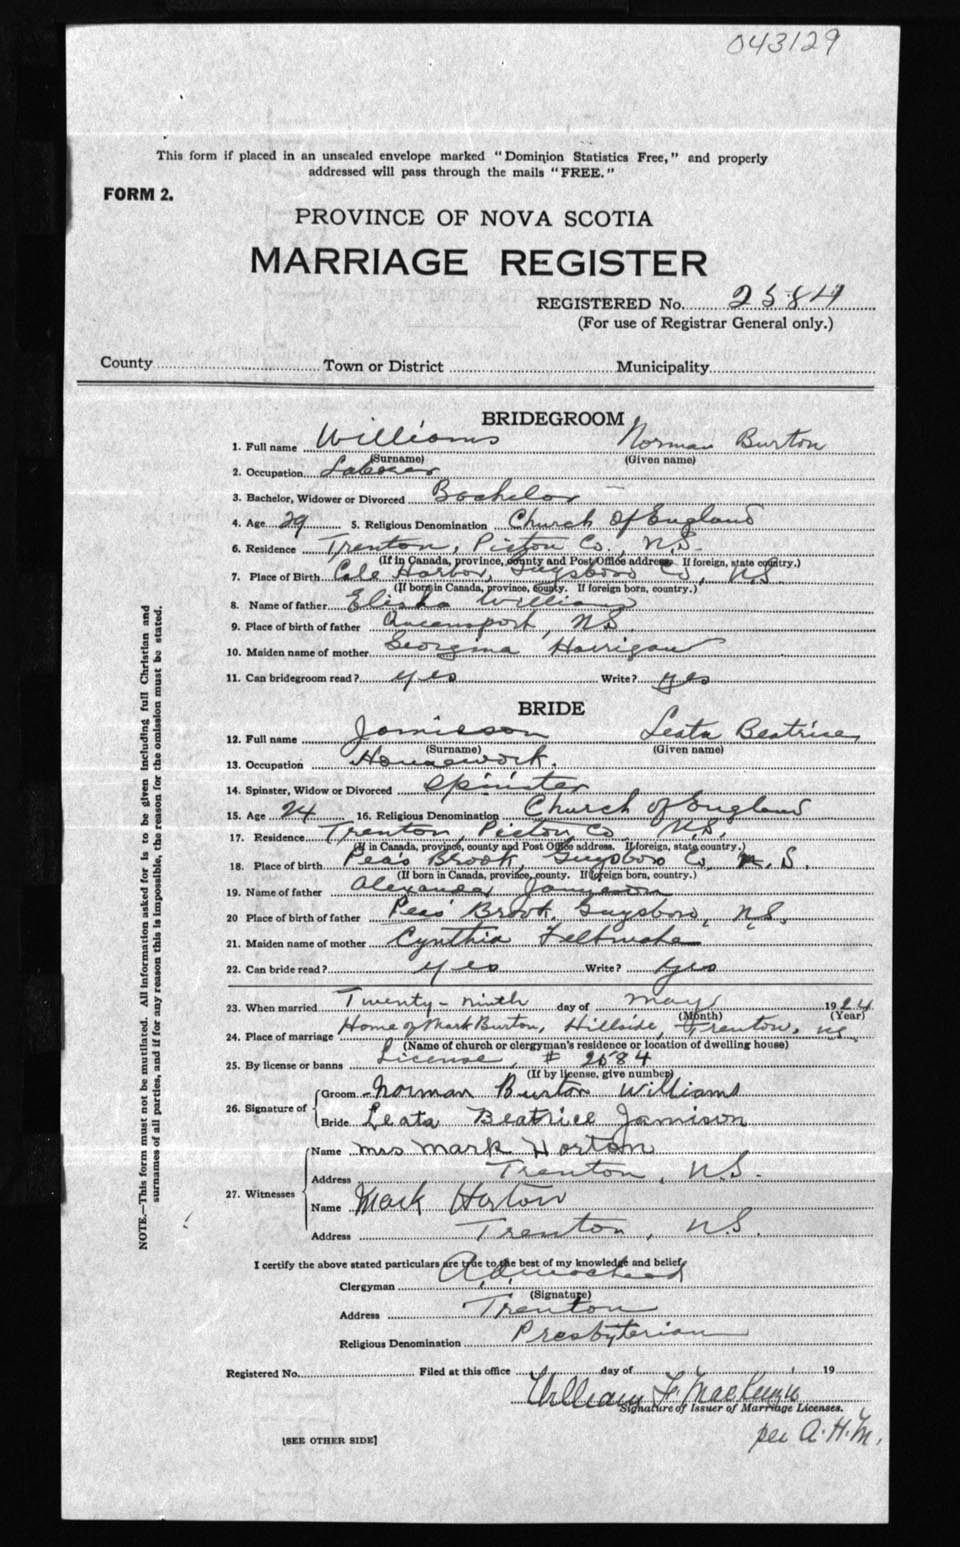 043129
This form if placed in an unsealed envelope marked "Dominion Statistics Free," and properly
addressed will pass through the mails "FREE."
FORM 2.
PROVINCE OF NOVA SCOTIA
MARRIAGE REGISTER
REGISTERED No. 2584
(For use of Registrar General only.)
County Town or District Municipality
BRIDEGROOM
1. Full name Williams Norman Burton
(Surname) (Given name)
2. Occupation Laborer
3. Bachelor, Widower or Divorced Bachelor
4. Age 29 5. Religious Denomination Church of England
6. Residence Trenton, Pictou Co., N.S.
(If in Canada, province, county and Post Office address. If foreign, state country.)
7. Place of Birth Cole Harbor, Guysboro Co., N.S.
(If born in Canada, province, county. If foreign born, country.)
8. Name of father Elisha Williams
9. Place of birth of father Queensport, N.S.
10. Maiden name of mother Georgina Horrigan
11. Can bridegroom read? yes Write? yes
BRIDE
12. Full name Jamieson Leata Beatrice
(Surname) (Given name)
13. Occupation Housework.
14. Spinster, Widow or Divorced Spinster
15. Age 24 16. Religious Denomination Church of England
17. Residence Trenton, Pictou Co., N.S.
(If in Canada, province, county and Post Office address. If foreign, state country.)
18. Place of birth Peas Brook, Guysboro Co, N.S.
(If born in Canada, province, county. If foreign born, country.)
19. Name of father Alexander Jamieson
20 Place of birth of father Peas Brook, Guysboro, N.S.
21. Maiden name of mother Cynthia Feltmate
22. Can bride read? yes Write? yes
23. When married Twenty-ninth day of May 1924
(Month) (Year)
24. Place of marriage Home of Mark Burton, Hillside, Trenton, NS
(Name of church or clergyman's residence or location of dwelling house)
25. By license or banns License, # 2584
(If by license, give number)
26. Signature of Groom Norman Burton Williams
Bride Leata Beatrice Jamison
27. Witnesses Name Mrs Mark Horton
Address Trenton, N.S.
Name Mark Horton
Address Trenton, N.S.
I certify the above stated particulars are true to the best of my knowledge and belief,
Clergyman
(Signature)
Address Trenton
Religious Denomination Presbyterian
Registered No. Filed at this office day of 19
William F MacKenzie
Signature of Issuer of Marriage Licenses.
per A.H.M.
[SEE OTHER SIDE]
NOTE.—This form must not be mutilated. All information asked for is to be given including full Christian and
surnames of all parties, and if for any reason this is impossible, the reason for the omission must be stated.